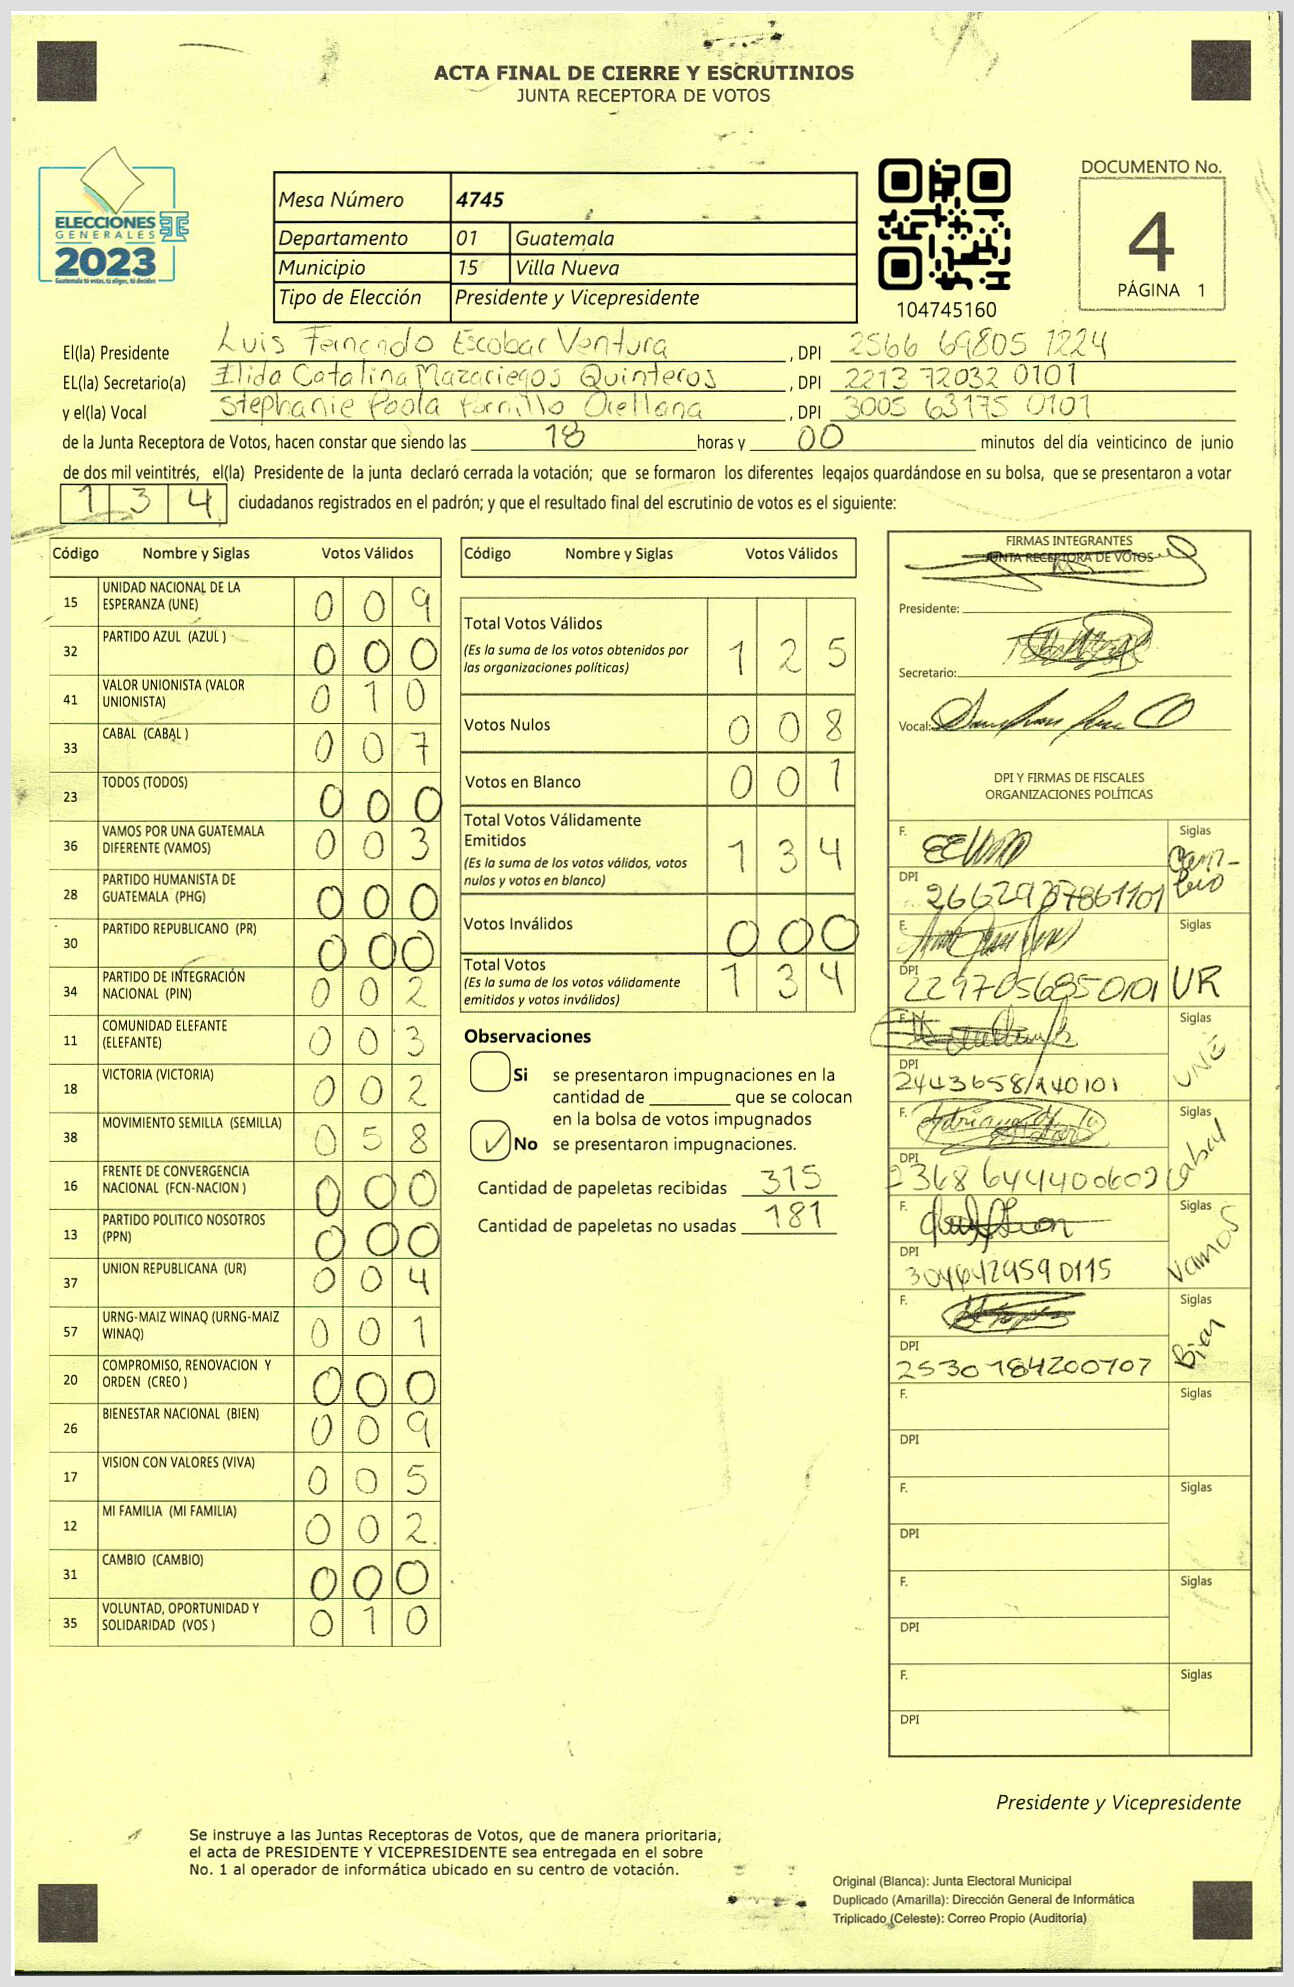 ACTA FINAL DE CIERRE Y ESCRUTINIOS
JUNTA RECEPTORA DE VOTOS
ELECCIONES
GENERALES
2023
Guatemala tú votas, tú eliges, tú decides
Mesa Número 4745
Departamento 01 Guatemala
Municipio 15 Villa Nueva
Tipo de Elección Presidente y Vicepresidente
104745160
DOCUMENTO No.
4
PÁGINA 1
El(la) Presidente Luis Fernando Escobar Ventura , DPI 2566 69805 1224
EL(la) Secretario(a) Ilida Catalina Mazariegos Quinteros , DPI 2213 72032 0101
y el(la) Vocal Stephanie Paola Orellana , DPI 3005 63175 0101
de la Junta Receptora de Votos, hacen constar que siendo las 18 horas y 00 minutos del día veinticinco de junio
de dos mil veintitrés, el(la) Presidente de la junta declaró cerrada la votación; que se formaron los diferentes legajos guardándose en su bolsa, que se presentaron a votar
1 3 4 ciudadanos registrados en el padrón; y que el resultado final del escrutinio de votos es el siguiente:
Código Nombre y Siglas Votos Válidos
15 UNIDAD NACIONAL DE LA ESPERANZA (UNE) 0 0 9
32 PARTIDO AZUL (AZUL ) 0 0 0
41 VALOR UNIONISTA (VALOR UNIONISTA) 0 1 0
33 CABAL (CABAL ) 0 0 7
23 TODOS (TODOS) 0 0 0
36 VAMOS POR UNA GUATEMALA DIFERENTE (VAMOS) 0 0 3
28 PARTIDO HUMANISTA DE GUATEMALA (PHG) 0 0 0
30 PARTIDO REPUBLICANO (PR) 0 0 0
34 PARTIDO DE INTEGRACIÓN NACIONAL (PIN) 0 0 2
11 COMUNIDAD ELEFANTE (ELEFANTE) 0 0 3
18 VICTORIA (VICTORIA) 0 0 2
38 MOVIMIENTO SEMILLA (SEMILLA) 0 5 8
16 FRENTE DE CONVERGENCIA NACIONAL (FCN-NACION ) 0 0 0
13 PARTIDO POLITICO NOSOTROS (PPN) 0 0 0
37 UNION REPUBLICANA (UR) 0 0 4
57 URNG-MAIZ WINAQ (URNG-MAIZ WINAQ) 0 0 1
20 COMPROMISO, RENOVACION Y ORDEN (CREO ) 0 0 0
26 BIENESTAR NACIONAL (BIEN) 0 0 9
17 VISION CON VALORES (VIVA) 0 0 5
12 MI FAMILIA (MI FAMILIA) 0 0 2
31 CAMBIO (CAMBIO) 0 0 0
35 VOLUNTAD, OPORTUNIDAD Y SOLIDARIDAD (VOS ) 0 1 0
Código Nombre y Siglas Votos Válidos
Total Votos Válidos 1 2 5
(Es la suma de los votos obtenidos por
las organizaciones políticas)
Votos Nulos 0 0 8
Votos en Blanco 0 0 1
Total Votos Válidamente
Emitidos 1 3 4
(Es la suma de los votos válidos, votos
nulos y votos en blanco)
Votos Inválidos 0 0 0
Total Votos 1 3 4
(Es la suma de los votos válidamente
emitidos y votos inválidos)
Observaciones
Si se presentaron impugnaciones en la
cantidad de ________ que se colocan
en la bolsa de votos impugnados
✓ No se presentaron impugnaciones.
Cantidad de papeletas recibidas 315
Cantidad de papeletas no usadas 181
FIRMAS INTEGRANTES
JUNTA RECEPTORA DE VOTOS
Presidente:
Secretario:
Vocal:
DPI Y FIRMAS DE FISCALES
ORGANIZACIONES POLÍTICAS
F. Siglas
DPI 2662937861101
F. Siglas UR
DPI 2297056850101
F. Siglas UNE
DPI
F. Siglas Cabal
DPI 2368644400602
F. Siglas Vamos
DPI 3046429590115
F. Siglas Bien
DPI 2530184200707
F. Siglas
DPI
F. Siglas
DPI
F. Siglas
DPI
F. Siglas
DPI
Presidente y Vicepresidente
Se instruye a las Juntas Receptoras de Votos, que de manera prioritaria,
el acta de PRESIDENTE Y VICEPRESIDENTE sea entregada en el sobre
No. 1 al operador de informática ubicado en su centro de votación.
Original (Blanca): Junta Electoral Municipal
Duplicado (Amarilla): Dirección General de Informática
Triplicado (Celeste): Correo Propio (Auditoría)